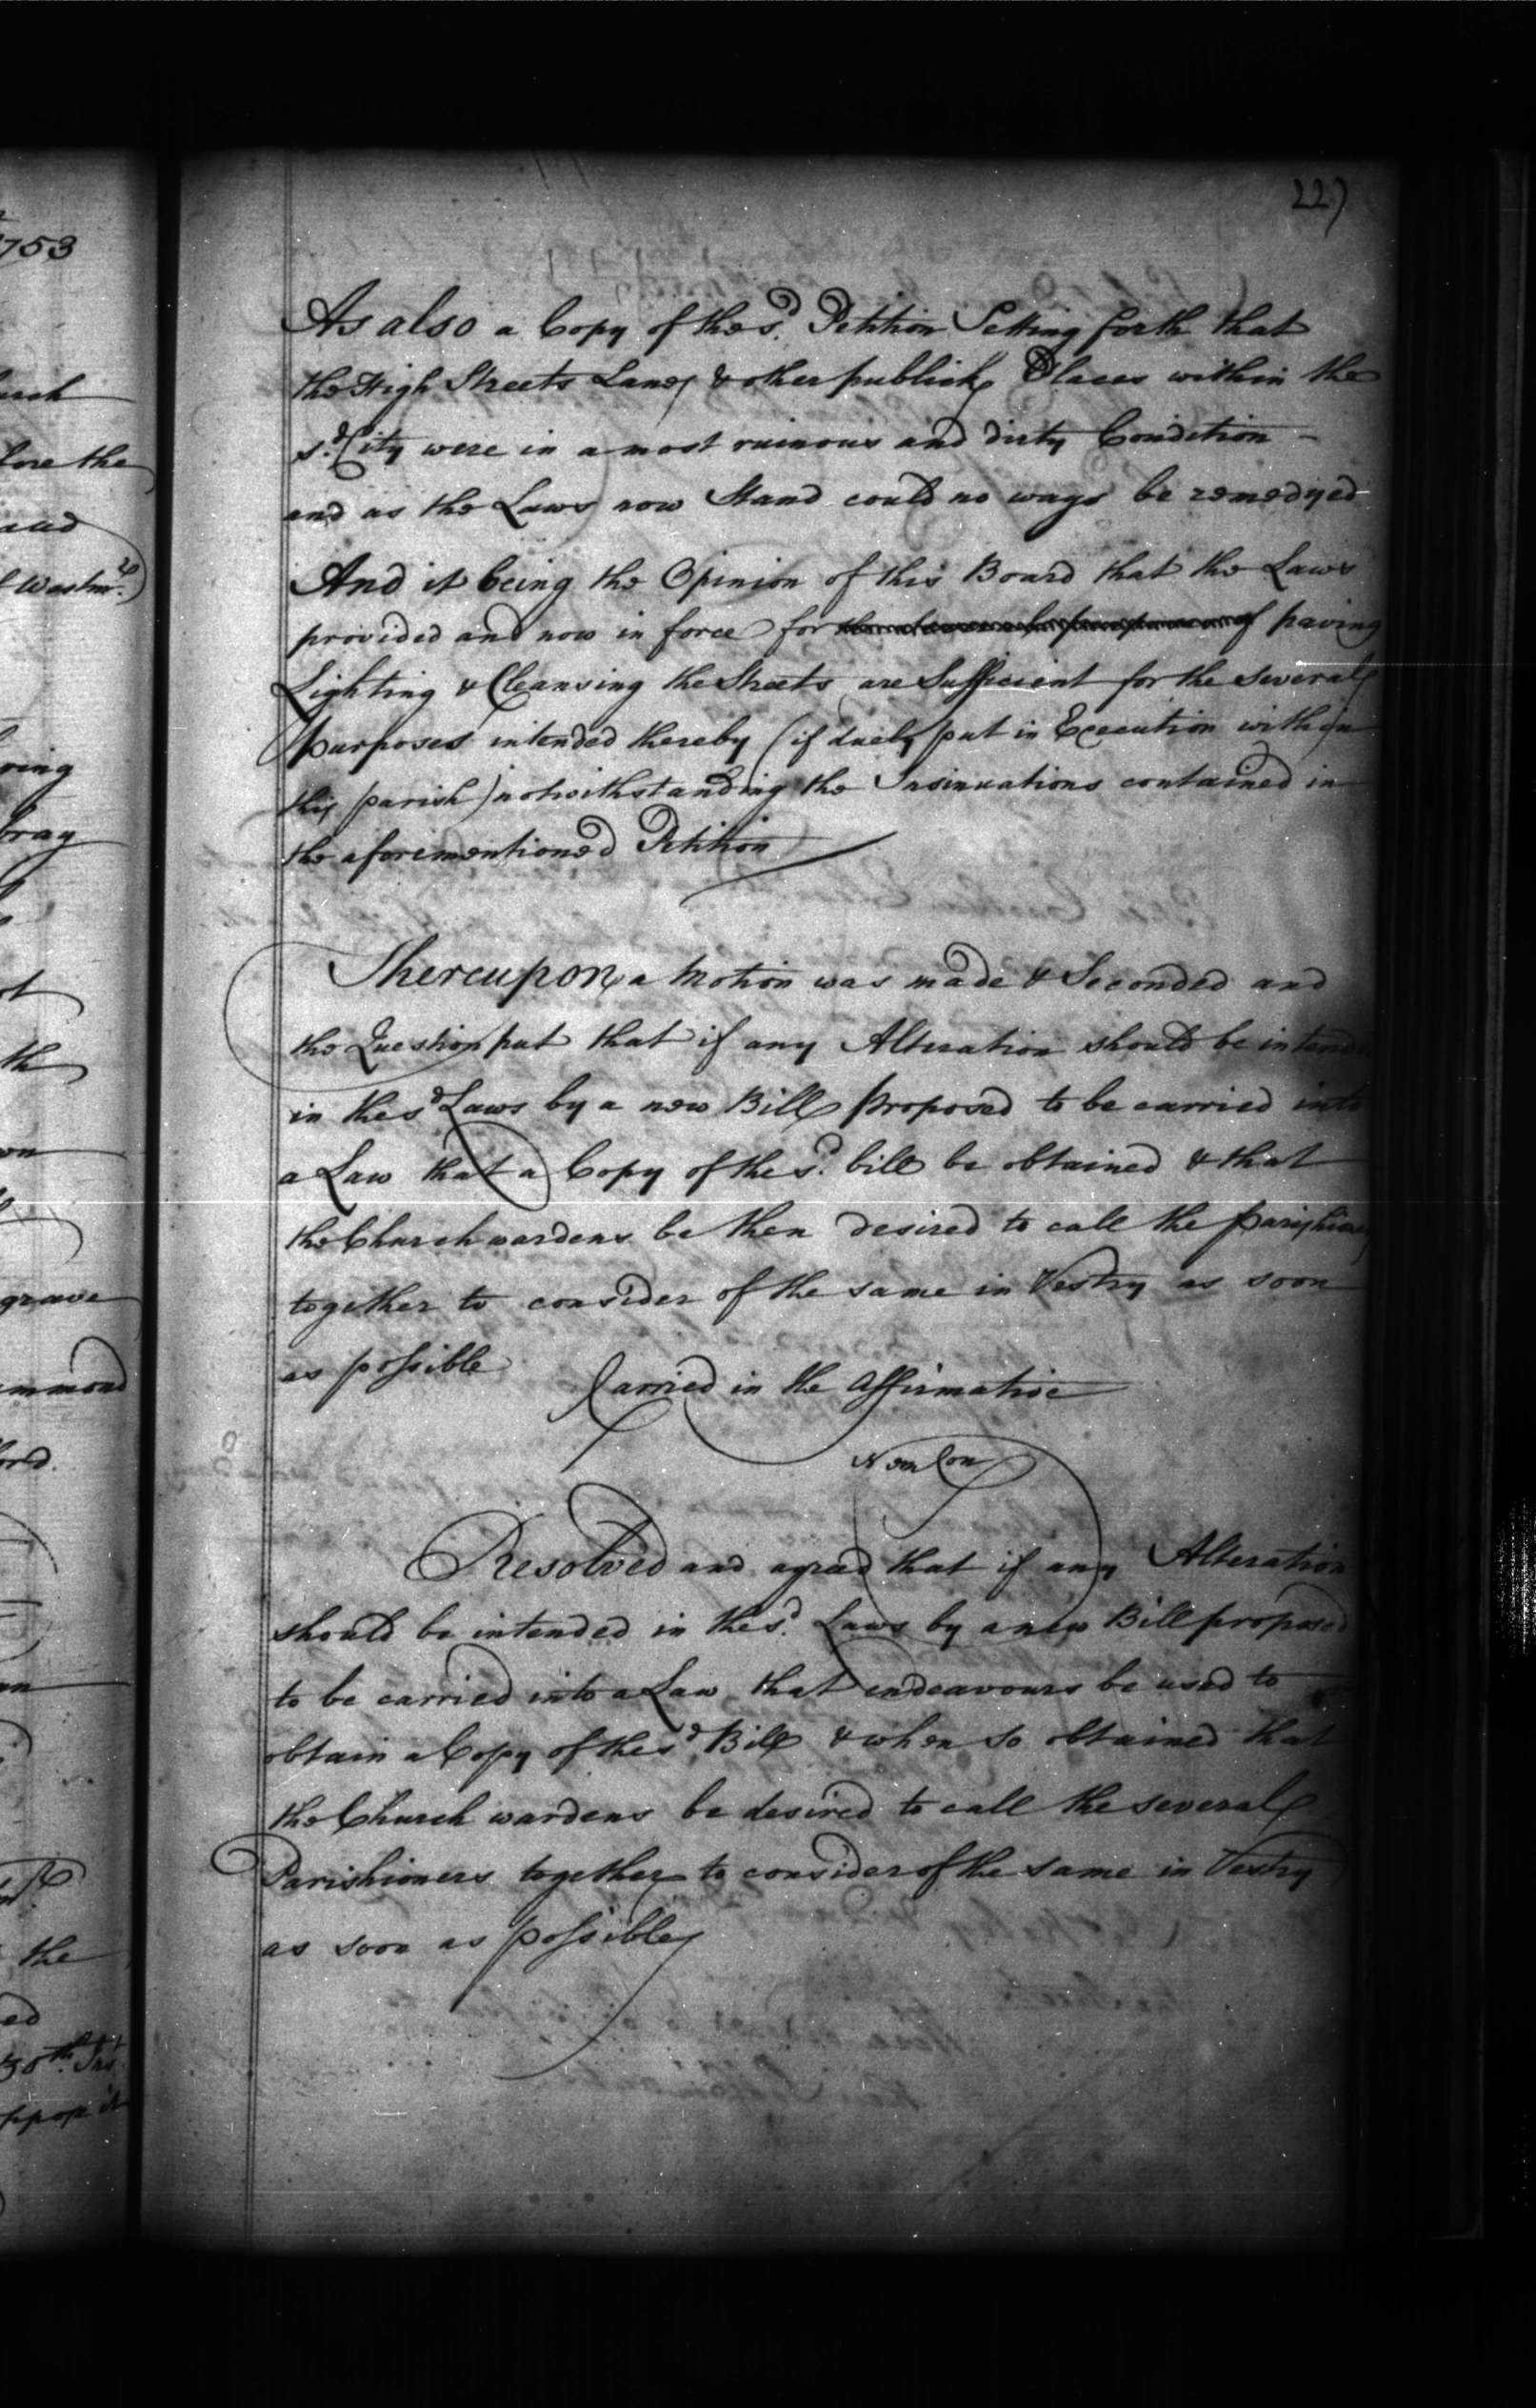 227
As also a Copy of the sd. Petition Setting forth that
the High Streets Lanes & other publick Places within the
sd. City were in a most ruinous and dirty Condition -
and as the Laws now Stand could no ways be remedyed
And it being the Opinion of this Board that the Laws
provided and now in force for paving
Lighting & Cleansing the Streets are Sufficient for the several
purposes intended thereby (if duely put in Execution within
this parish) notwithstanding the Insinuations contained in
the aforementioned Petition
Thereupon a Motion was made & Seconded and
the Question put that if any Alteration should be intended
in the sd Laws by a new Bill proposed to be carried into
a Law that a Copy of the sd. bill be obtained & that
the Church wardens be then desired to call the parishioners
together to consider of the same in Vestry as soon
as possible
Carried in the affirmative
Nem Con
Resolved and agreed that if any Alteration
should be intended in the sd. Laws by a new Bill proposed
to be carried into a Law that endeavours be used to
obtain a Copy of the sd Bill & when so obtained that
the Church wardens be desired to call the several
Parishioners together to consider of the same in Vestry
as soon as possible
1753
fore the
Westmr.
grave
the
30th Inst